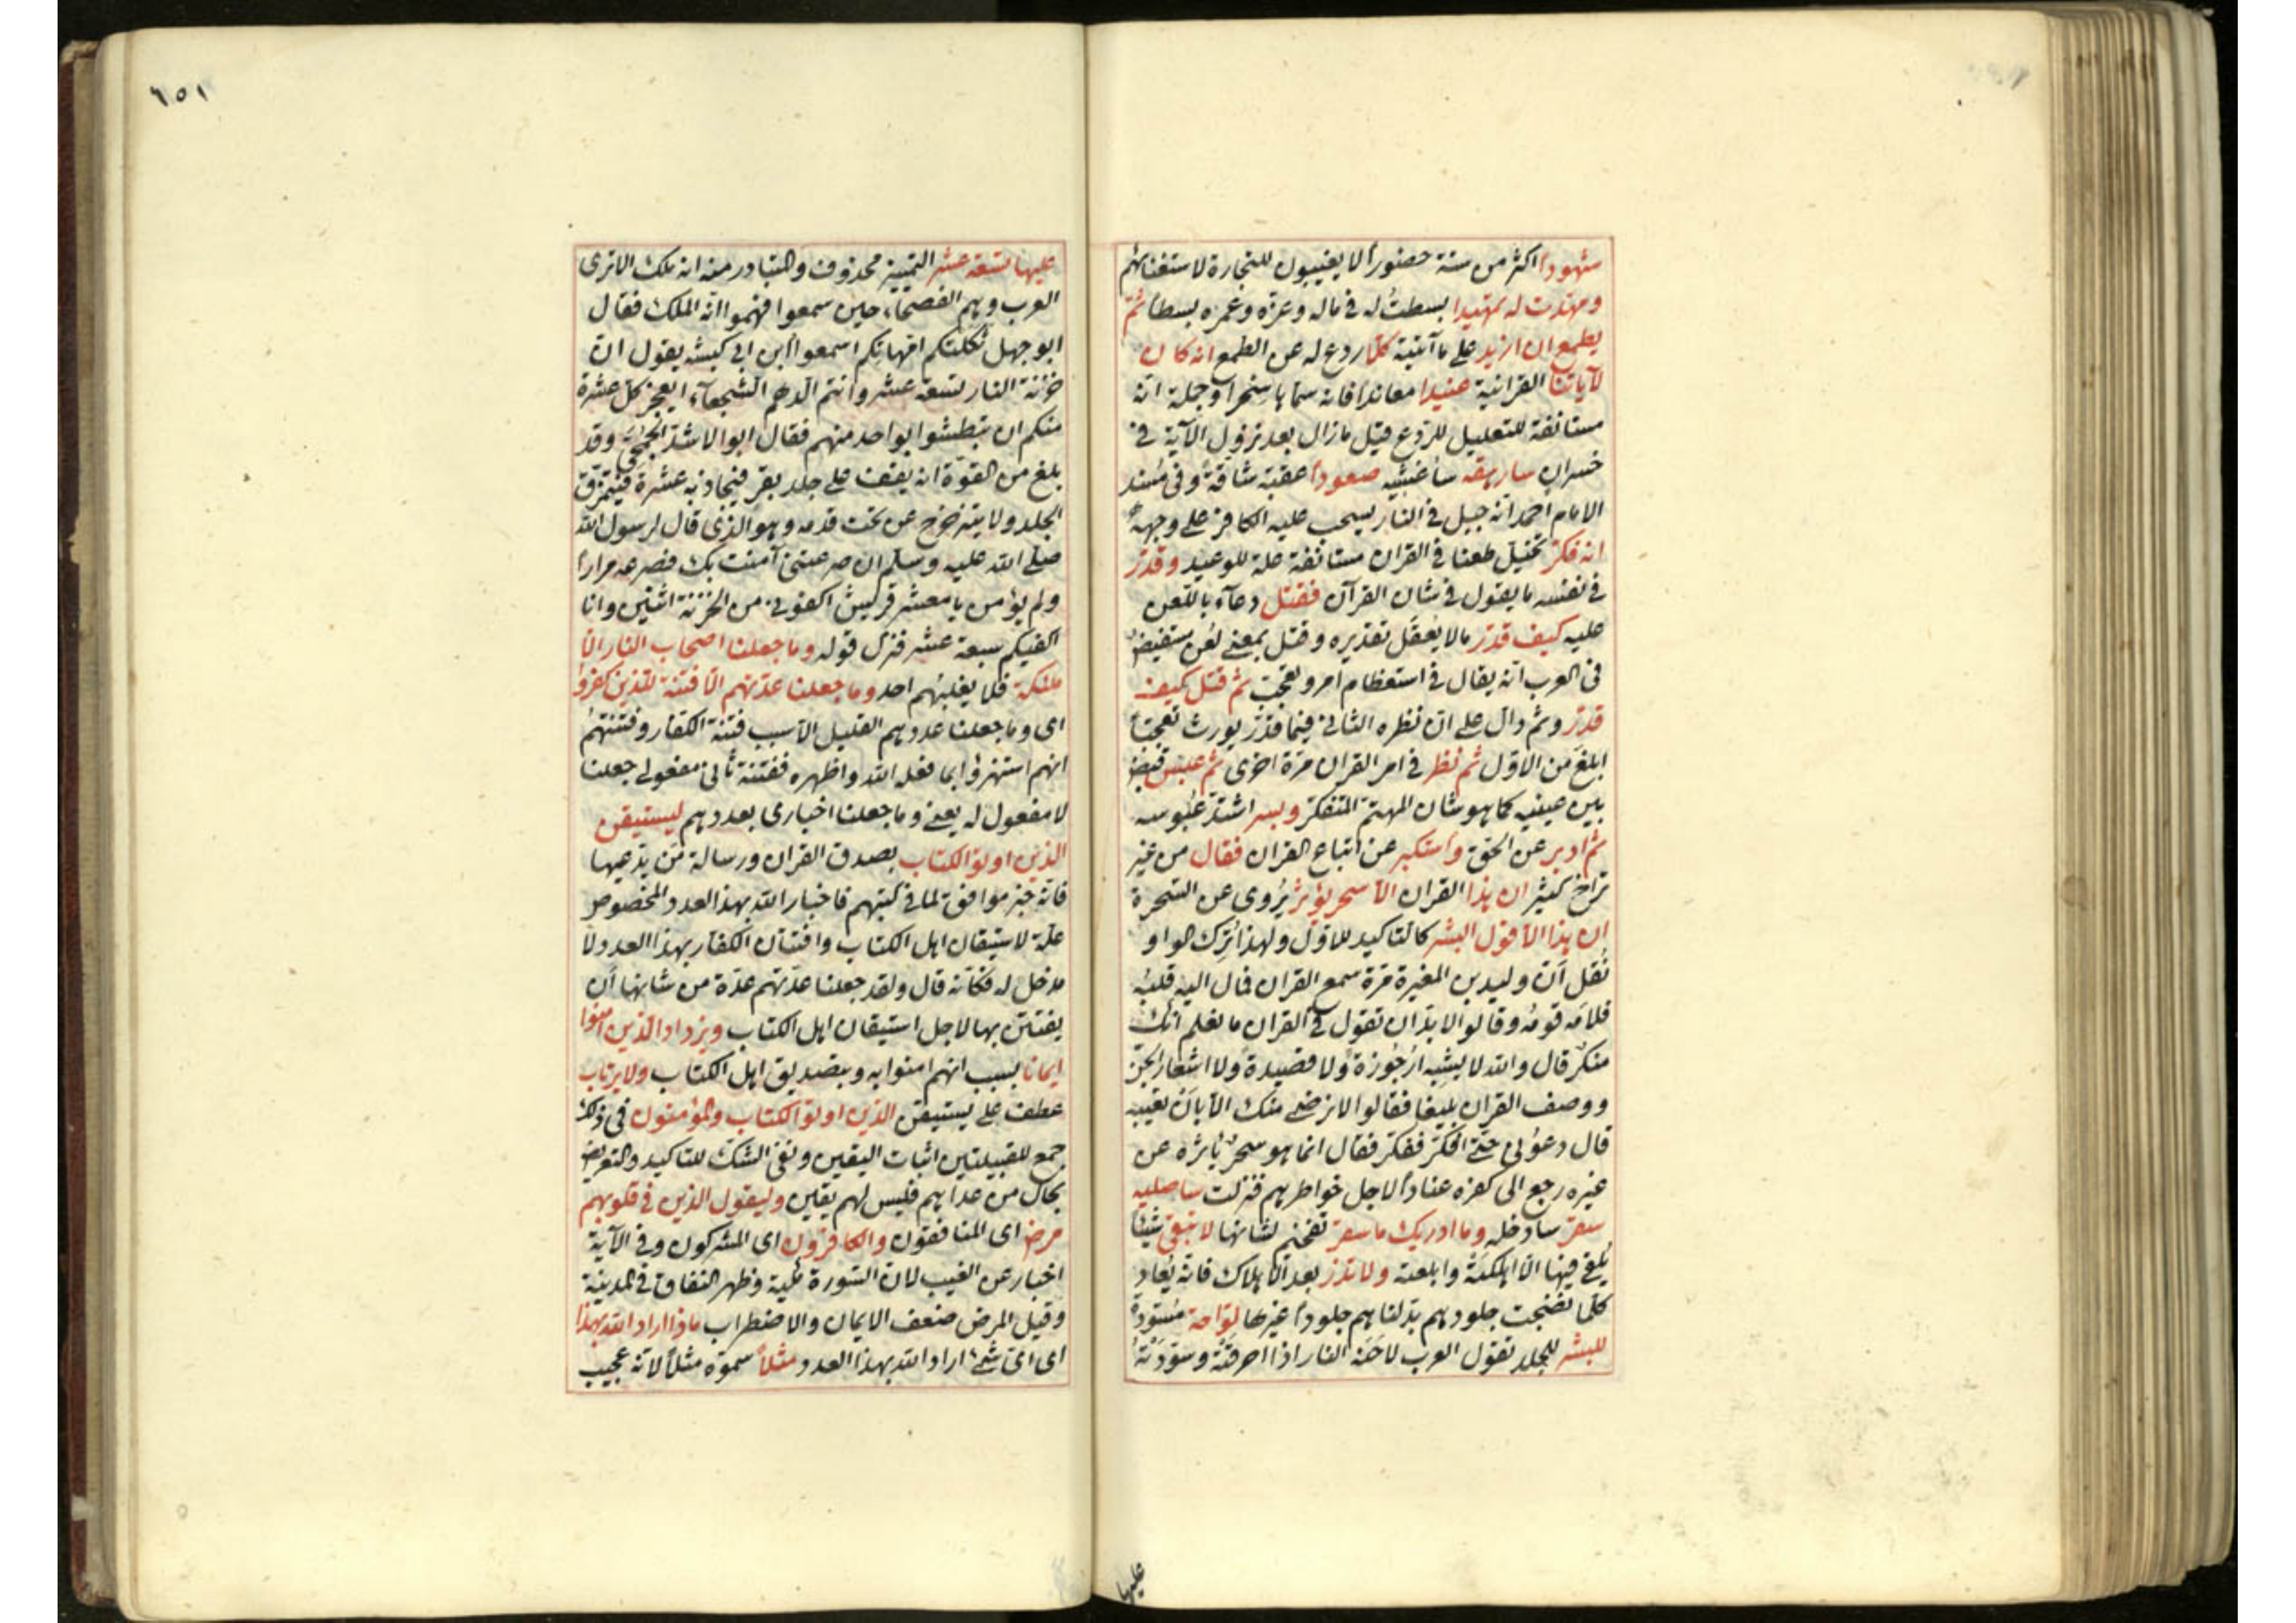 شهودا اكثر من ستة حضورا لا يغيبون للتجارة لاستغنائهم
ومهدت له تمهيدا بسطت له في ماله وعزه وعمره بسطا ثم
يطمع ان ازيد على ما آتيته كلا ردع له عن الطمع انه كان
لآياتنا القرانية عنيدا معاندا فانه سماها سحرا وجملة انه
مستانفة للتعليل للردع قيل ما زال بعد نزول الآية في
خسران سارهقه سأغشيه صعودا عقبة شاقة وفي مسند
الامام احمد انه جبل في النار يسحب عليه الكافر على وجهه
انه فكر تخيل طعنا في القران مستانفة علة للوعيد وقدر
في نفسه ما يقول في شان القرآن فقتل دعاء باللعن
عليه كيف قدر ما لا يعقل تقديره وقتل بمعنى لعن مستفيض
في العرب انه يقال في استعظام امر وتعجب ثم قتل كيف
قدر وثم دال على ان نظره الثاني فيما قدر يورث تعجبا
ابلغ من الاول ثم نظر في امر القران مرة اخرى ثم عبس قبض
بين عينيه كما هو شان المهتم المتفكر وبسر اشتد عبوسه
ثم ادبر عن الحق واستكبر عن اتباع القران فقال من غير
تراخ كثير ان هذا القران الا سحر يؤثر يروى عن السحرة
ان هذا الا قول البشر كالتاكيد للاول ولهذا ترك الواو
نقل ان وليد بن المغيرة مرة سمع القران فمال اليه قلبه
فلامه قومه وقالوا لابد ان تقول في القران ما نعلم انك
منكر قال والله لا يشبه ارجوزة ولا قصيدة ولا اشعار الجن
ووصف القران بليغا فقالوا لا نرضى منك الا بان تعيبه
قال دعوني حتى افكر ففكر فقال انما هو سحر يأثره عن
غيره رجع الى كفره عنادا لاجل خواطرهم فنزلت ساصليه
سقر سادخله وما ادريك ما سقر تفخيم لشانها لا تبقي شيئا
يلقى فيها الا اهلكته وابلعته ولا تذر بعد الاهلاك فانه يعاد
كلما نضجت جلودهم بدلناهم جلودا غيرها لواحة مسودة
للبشر للجلد تقول العرب لاحته النار اذا احرقته وسودته
عليها
٦٥١
عليها تسعة عشر التمييز محذوف والمتبادر منه انه ملك الا ترى
العرب وهم الفصحاء حين سمعوا فهموا انه الملك فقال
ابو جهل ثكلتكم امهاتكم اسمعوا ابن ابي كبشه يقول ان
خزنة النار تسعة عشر وانتم الدهم الشجعاء ايعجز كل عشرة
منكم ان يبطشوا بواحد منهم فقال ابو الاشد الجمحي وقد
بلغ من القوة انه يقف على جلد بقر فيجاذبه عشرة فيتمزق
الجلد ولا يتزحزح عن تحت قدمه وهو الذي قال لرسول الله
صلى الله عليه وسلم ان صرعتني آمنت بك فصرعه مرارا
ولم يؤمن يا معشر قريش اكفوني من الخزنة اثنين وانا
اكفيكم سبعة عشر فنزل قوله وما جعلنا اصحاب النار الا
ملئكة فلا يغلبهم احد وما جعلنا عدتهم الا فتنة للذين كفروا
اى وما جعلنا عددهم القليل الا سبب فتنة الكفار وفتنتهم
انهم استهزؤا بما فعله الله واظهره ففتنة ثاني مفعولي جعلنا
لا مفعول له يعني وما جعلنا اخباري بعددهم ليستيقن
الذين اوتوا الكتاب بصدق القران ورسالة من يدعيها
فانه خبر موافق لما في كتبهم فاخبار الله بهذا العدد المخصوص
علة لاستيقان اهل الكتاب وافتتان الكفار بهذا العدد ولا
مدخل له فكانه قال ولقد جعلنا عدتهم عدة من شانها ان
يفتتن بها لاجل استيقان اهل الكتاب ويزداد الذين امنوا
ايمانا بسبب انهم امنوا به وبتصديق اهل الكتاب ولا يرتاب
عطف على يستيقن الذين اوتوا الكتاب والمؤمنون في ذلك
جمع للقبيلتين اثبات اليقين ونفي الشك للتاكيد والتعريض
بحال من عداهم فليس لهم يقين وليقول الذين في قلوبهم
مرض اى المنافقون والكافرون اى المشركون وفي الآية
اخبار عن الغيب لان السورة مكية وظهر النفاق في المدينة
وقيل المرض ضعف الايمان والاضطراب ماذا اراد الله بهذا
اى اى شئ اراد الله بهذا العدد مثلا سموه مثلا لانه عجيب